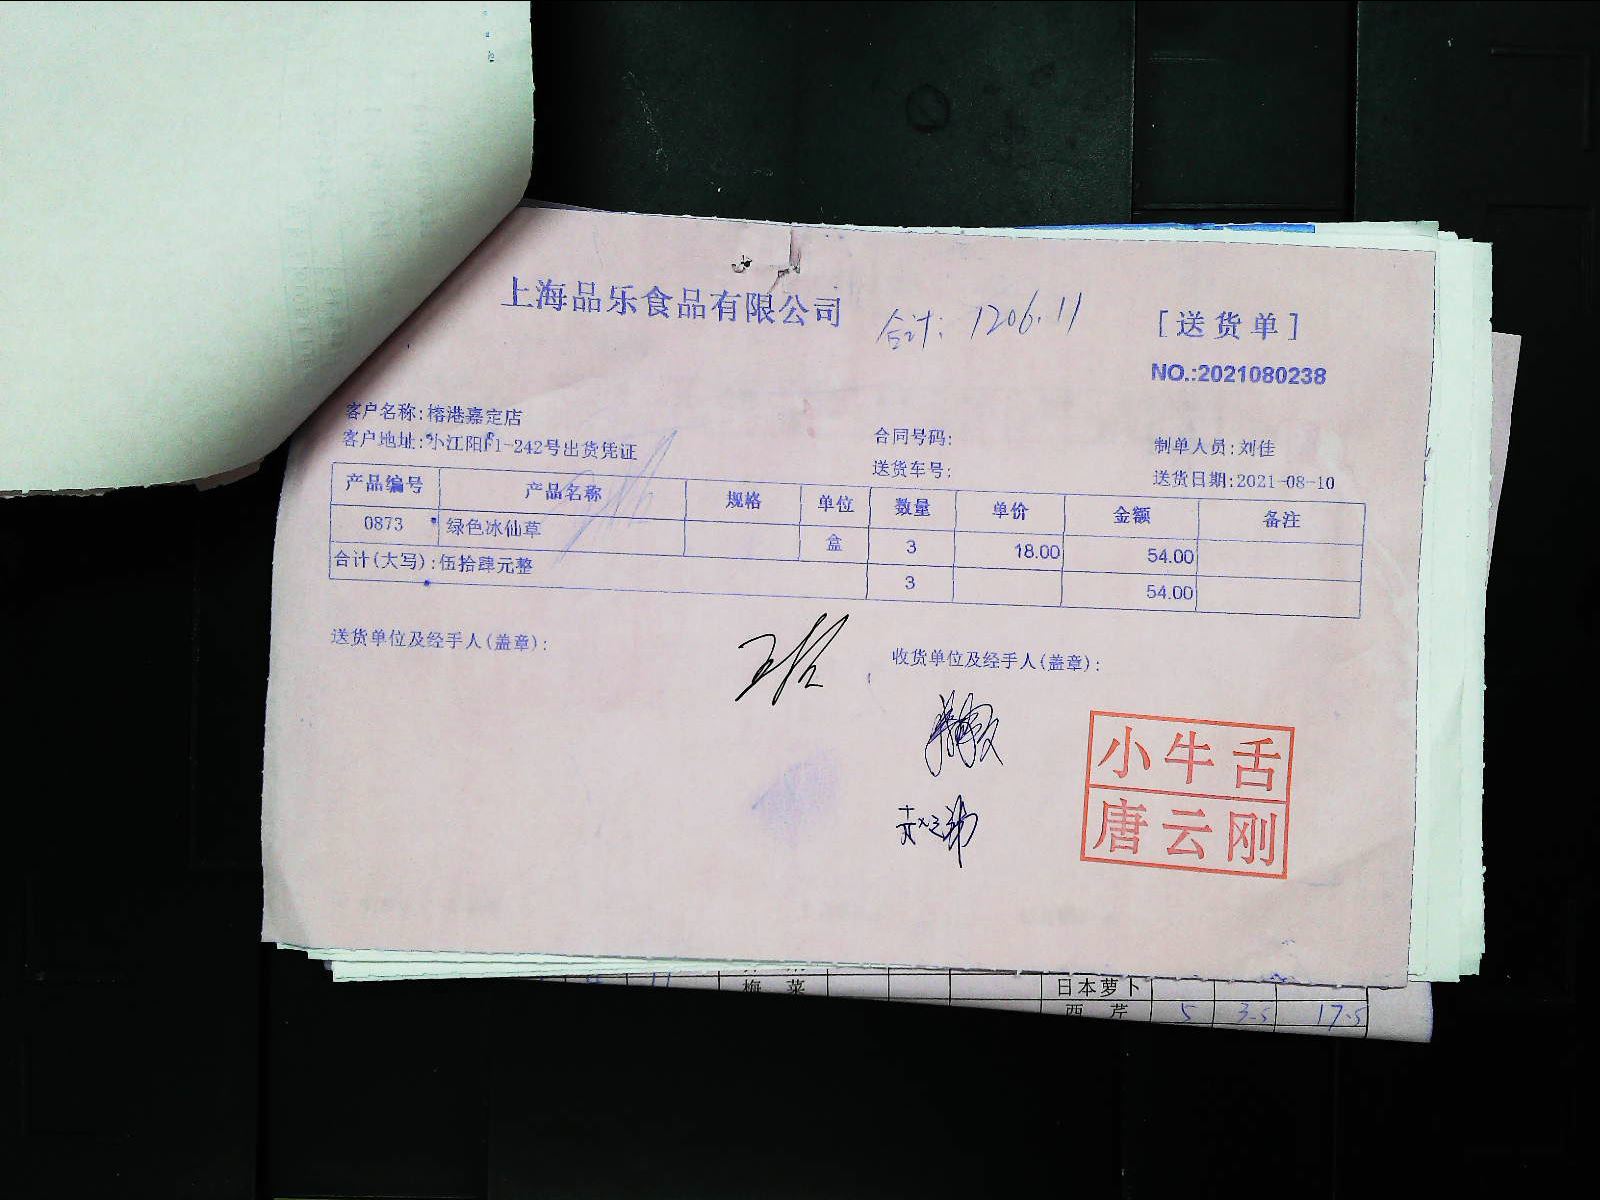 上海品乐食品有限公司
合计: 1206.11
[送货单]
NO.:2021080238
客户名称:榕港嘉定店
客户地址:小江阳F1-242号出货凭证
合同号码:
送货车号:
制单人员:刘佳
送货日期:2021-08-10
产品编号 产品名称 规格 单位 数量 单价 金额 备注
0873 绿色冰仙草 盒 3 18.00 54.00
合计(大写):伍拾肆元整 3 54.00
送货单位及经手人(盖章):
收货单位及经手人(盖章):
小牛舌
唐云刚
梅菜 日本萝卜
西芹 5 3.5 17.5